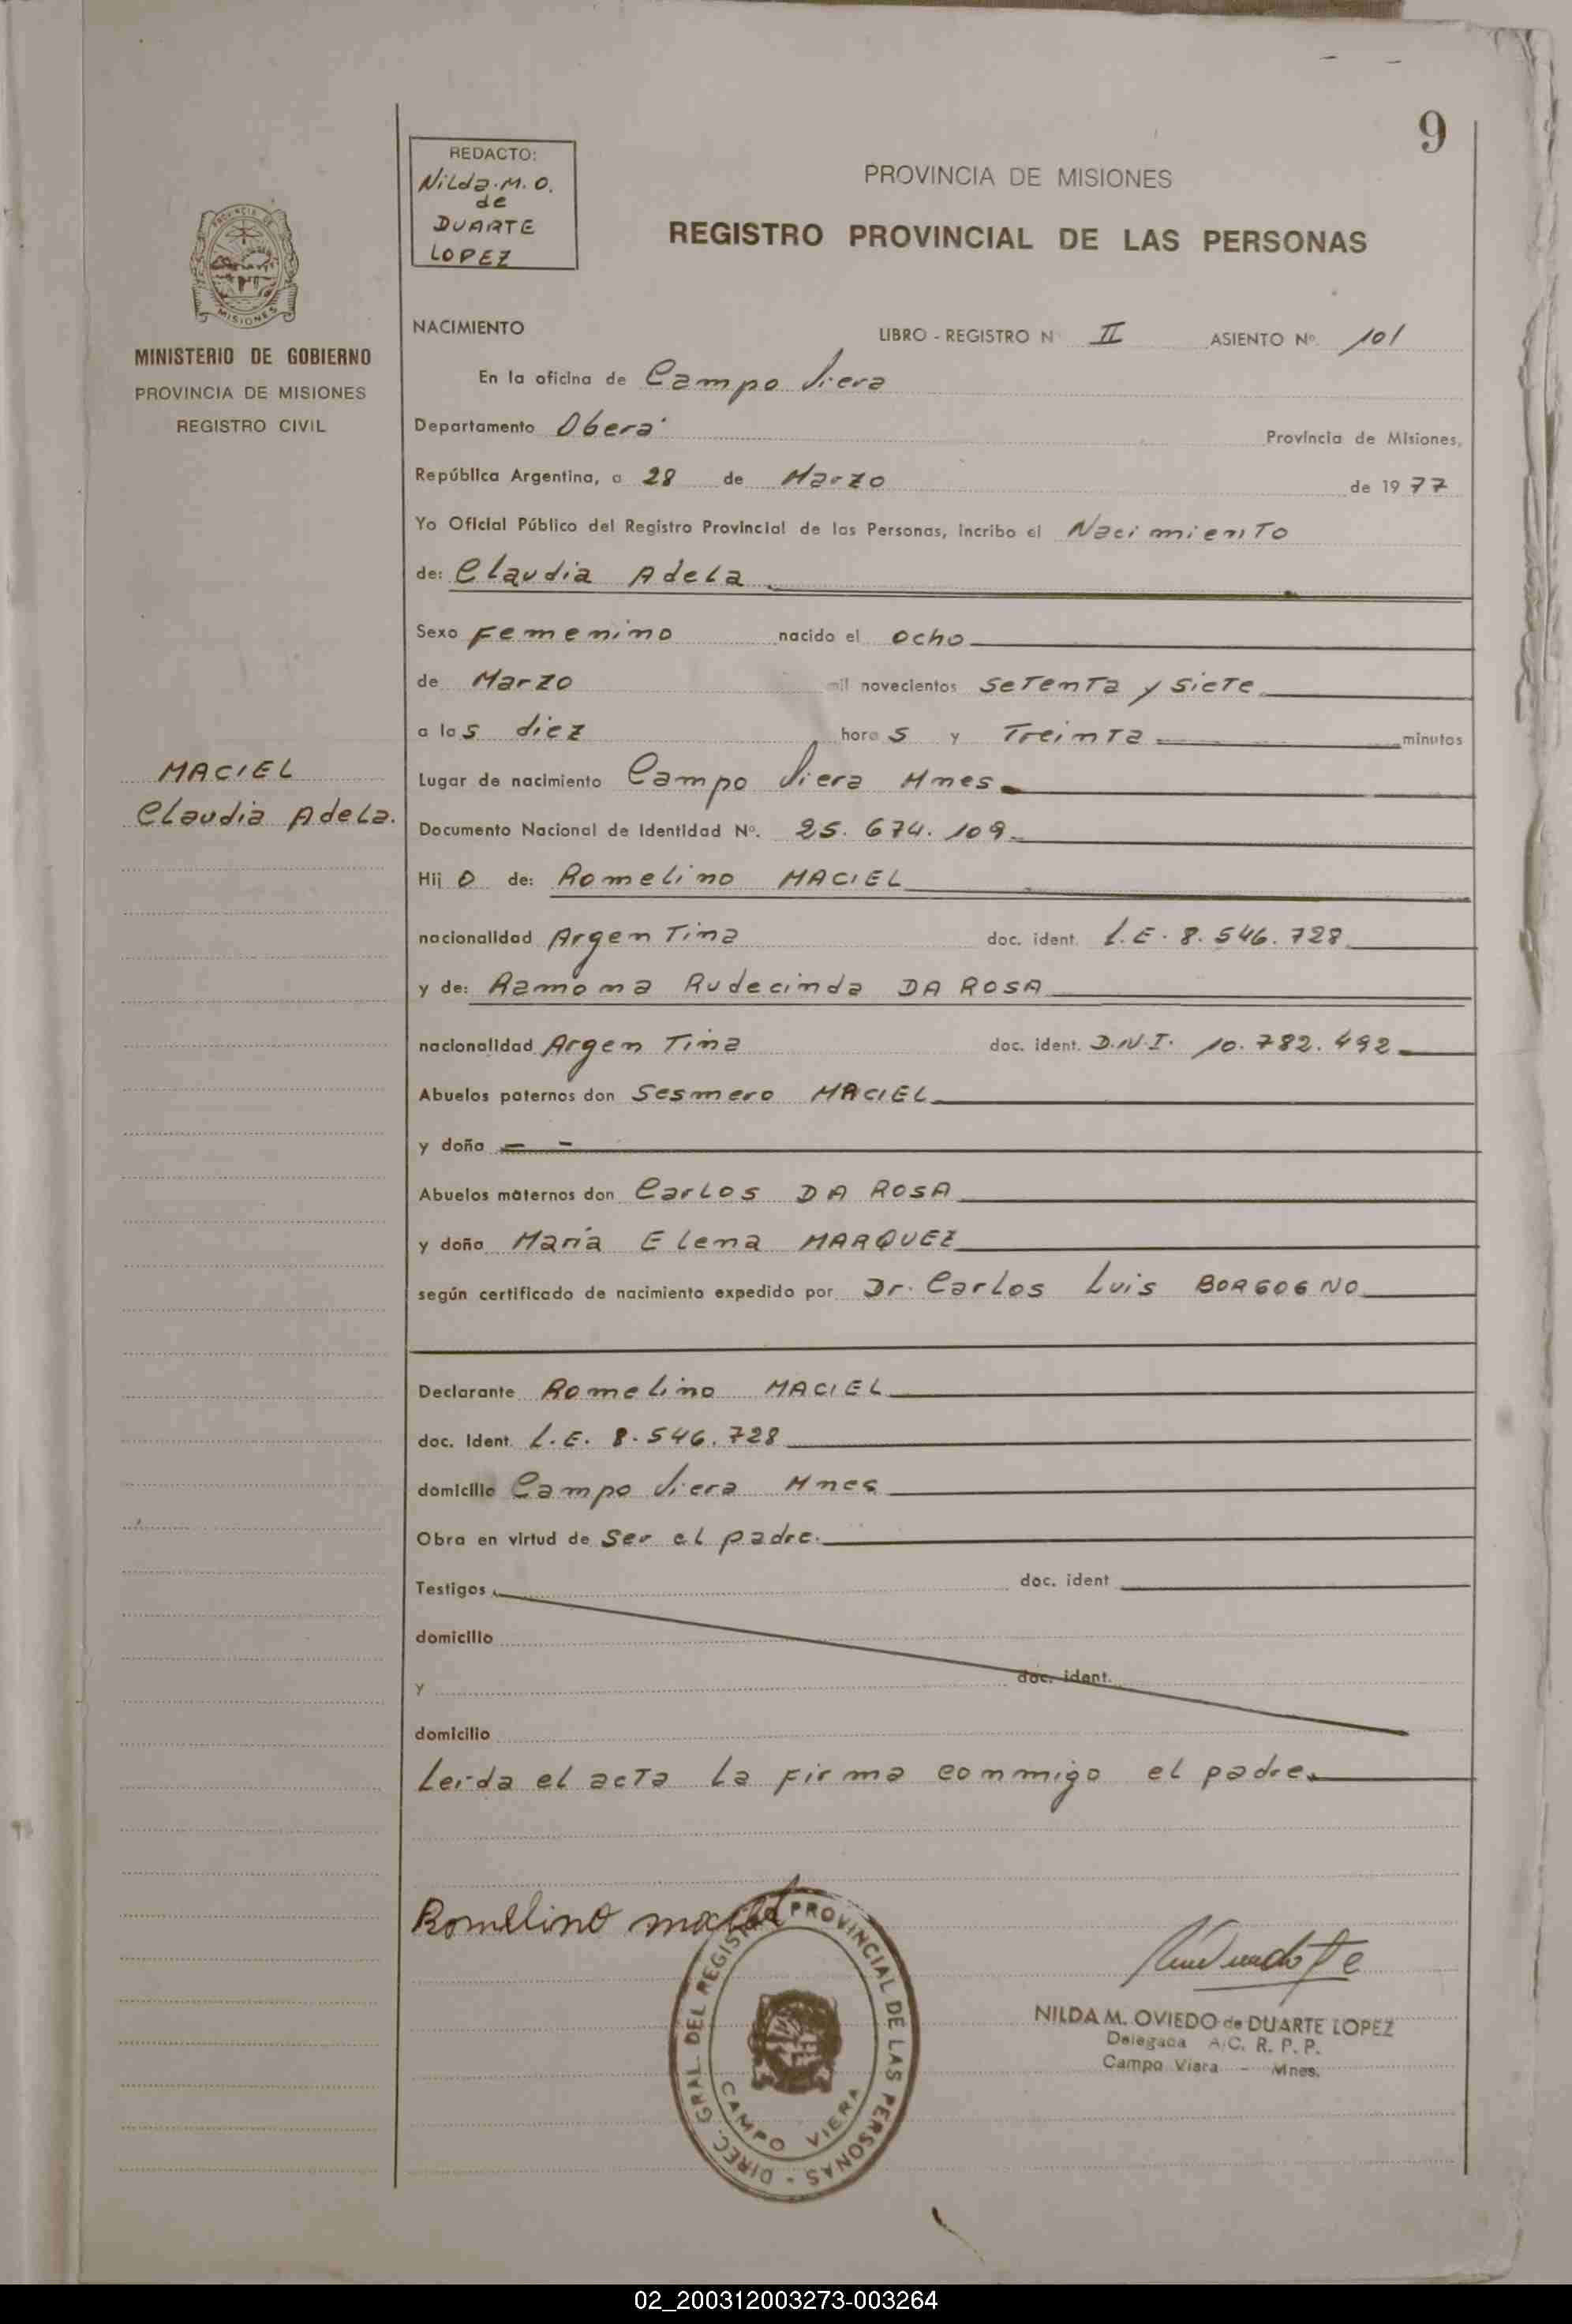 9
REDACTO:
Nilda. M. O.
de
DUARTE
LOPEZ
PROVINCIA DE MISIONES
REGISTRO PROVINCIAL DE LAS PERSONAS
PROVINCIA DE
MISIONES
MINISTERIO DE GOBIERNO
PROVINCIA DE MISIONES
REGISTRO CIVIL
NACIMIENTO LIBRO - REGISTRO N II ASIENTO Nº. 101
En la oficina de Campo Viera
Departamento Oberá Provincia de Misiones,
República Argentina, a 28 de Marzo de 1977
Yo Oficial Público del Registro Provincial de las Personas, incribo el Nacimiento
de: Claudia Adela
Sexo Femenino nacido el ocho
de Marzo mil novecientos setenta y siete
a las diez horas y Treinta minutos
MACIEL
Claudia Adela.
Lugar de nacimiento Campo Viera Mnes
Documento Nacional de Identidad Nº. 25. 674. 109
Hij o de: Romelino MACIEL
nacionalidad Argentina doc. ident. L.E. 8. 546. 728
y de: Ramona Rudecinda DA ROSA
nacionalidad Argentina doc. ident. D.N.I. 10. 782. 492
Abuelos paternos don Sesmero MACIEL
y doña – -
Abuelos maternos don Carlos DA ROSA
y doña María Elena MARQUEZ
según certificado de nacimiento expedido por Dr. Carlos Luis BORGOGNO
Declarante Romelino MACIEL
doc. Ident. L.E. 8. 546. 728
domicilio Campo Viera Mnes
Obra en virtud de ser el padre.
Testigos doc. ident
domicilio
y doc. ident.
domicilio
Leida el acta la firma conmigo el padre.
Romelino maciel
DIREC. GRAL. DEL REGISTRO PROVINCIAL DE LAS PERSONAS -
CAMPO VIERA
NILDA M. OVIEDO de DUARTE LOPEZ
Delegada A/C. R. P. P.
Campo Viera - Mnes.
02_200312003273-003264